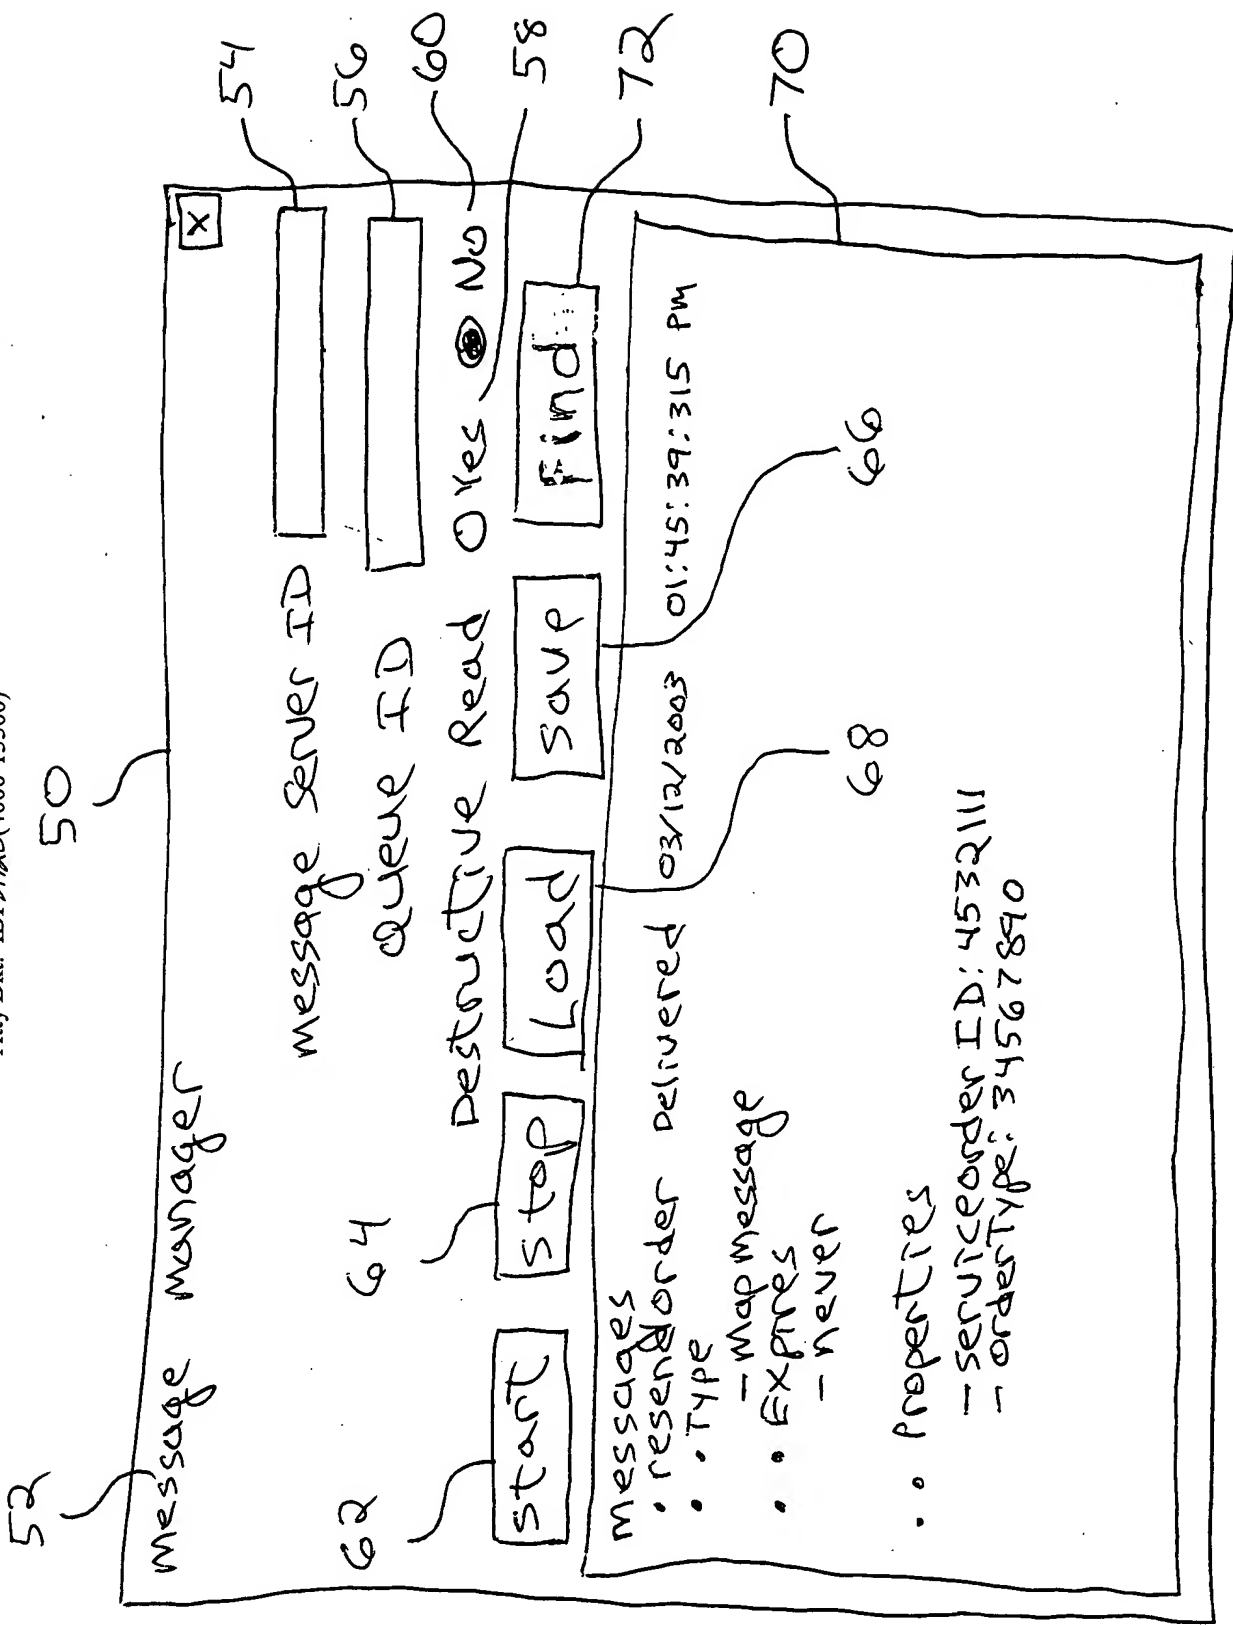 50
52
message manager
X
message Server ID
54
Queue ID
56
Destructive Read O Yes No
60
58
62
64
start
stop
Load
save
Find
72
messages
• resendorder Delivered 03/12/2003 01:45:39:315 PM
• • Type
- mapmessage
• • Expires
- never
• • Properties
- serviceorderID: 4532111
- orderType: 34567890
68
66
70